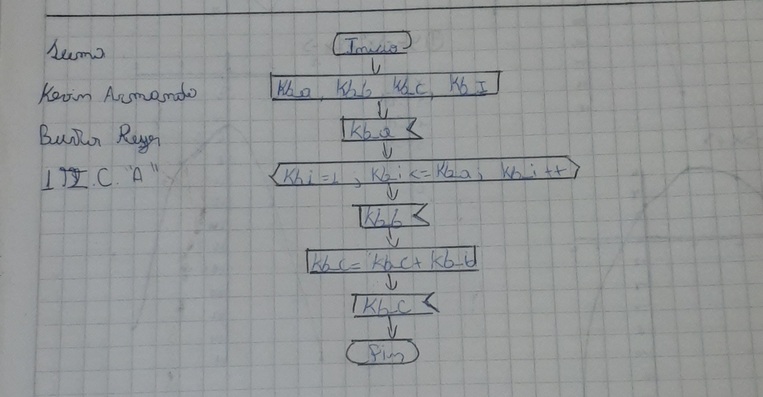 Suma
Kevin Armando
I.C. "A"
Inicio
Kb_a, Kb_b Kb_c, Kb_I
Kb_a
Kb_i=1, Kb_i<=Kb_a; Kb_i++
Kb_b
Kb_c= Kb_c+ Kb_b
Kb_c
Fin